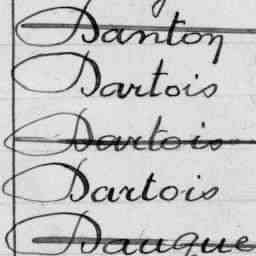 Danton
Dartois
Dartois
Dartois
Dauque